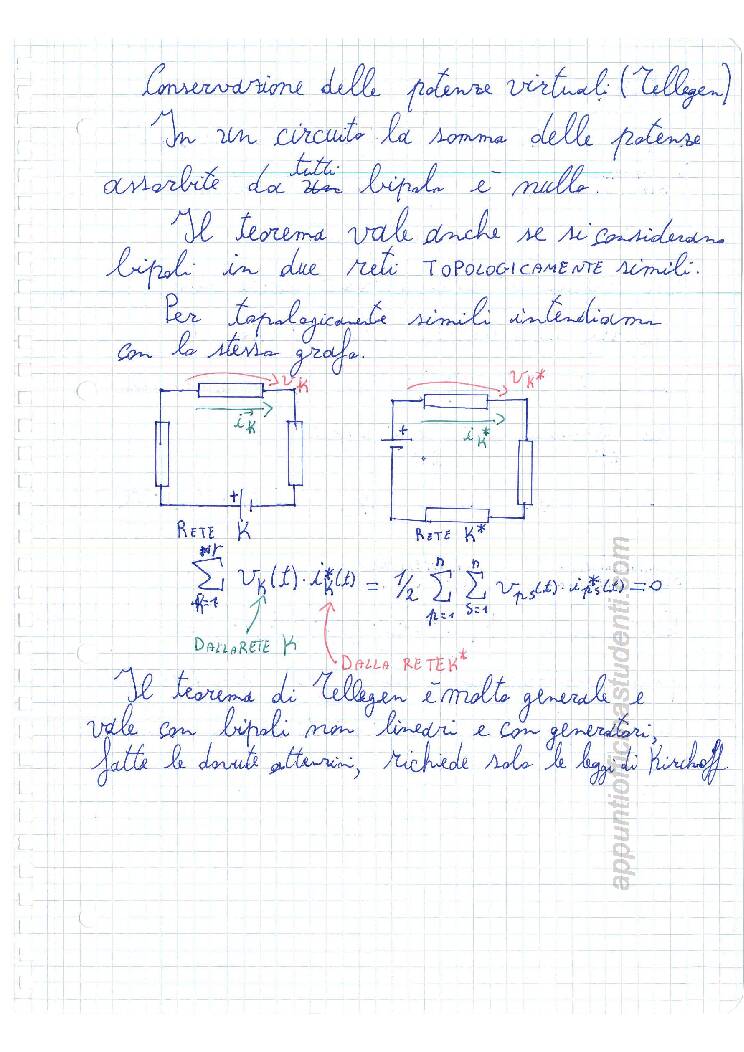 Conservazione delle potenze virtuali (Tellegen)
In un circuito la somma delle potenze
assorbite da tutti bipolo è nulla.
Il teorema vale anche se si considerano
bipoli in due reti TOPOLOGICAMENTE simili.
Per topologicamente simili intendiamo
con lo stesso grafo.
vK
iK
+
RETE K
vK*
+
iK*
RETE K*
∑ vK(t)·iK*(t) = 1/2 ∑ p=1 n ∑ s=1 n vps(t)·ips*(t) = 0
DALLA RETE K
DALLA RETE K*
Il teorema di Tellegen è molto generale e
vale con bipoli non lineari e con generatori,
fatte le dovute attenzini, richiede solo le leggi di Kirchoff
appuntiofficinastudenti.com